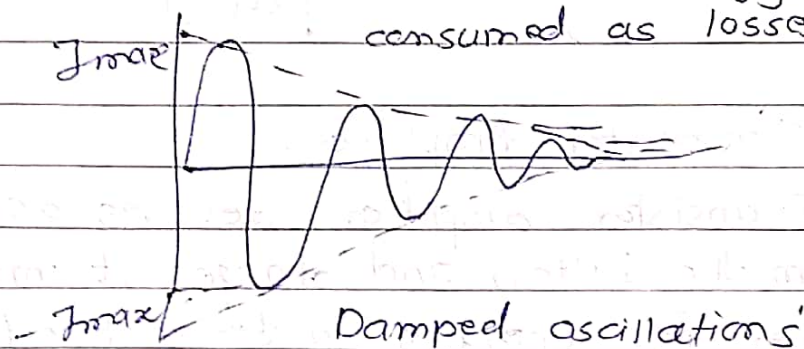 consumed as losse
Imax
- Imax
Damped oscillations